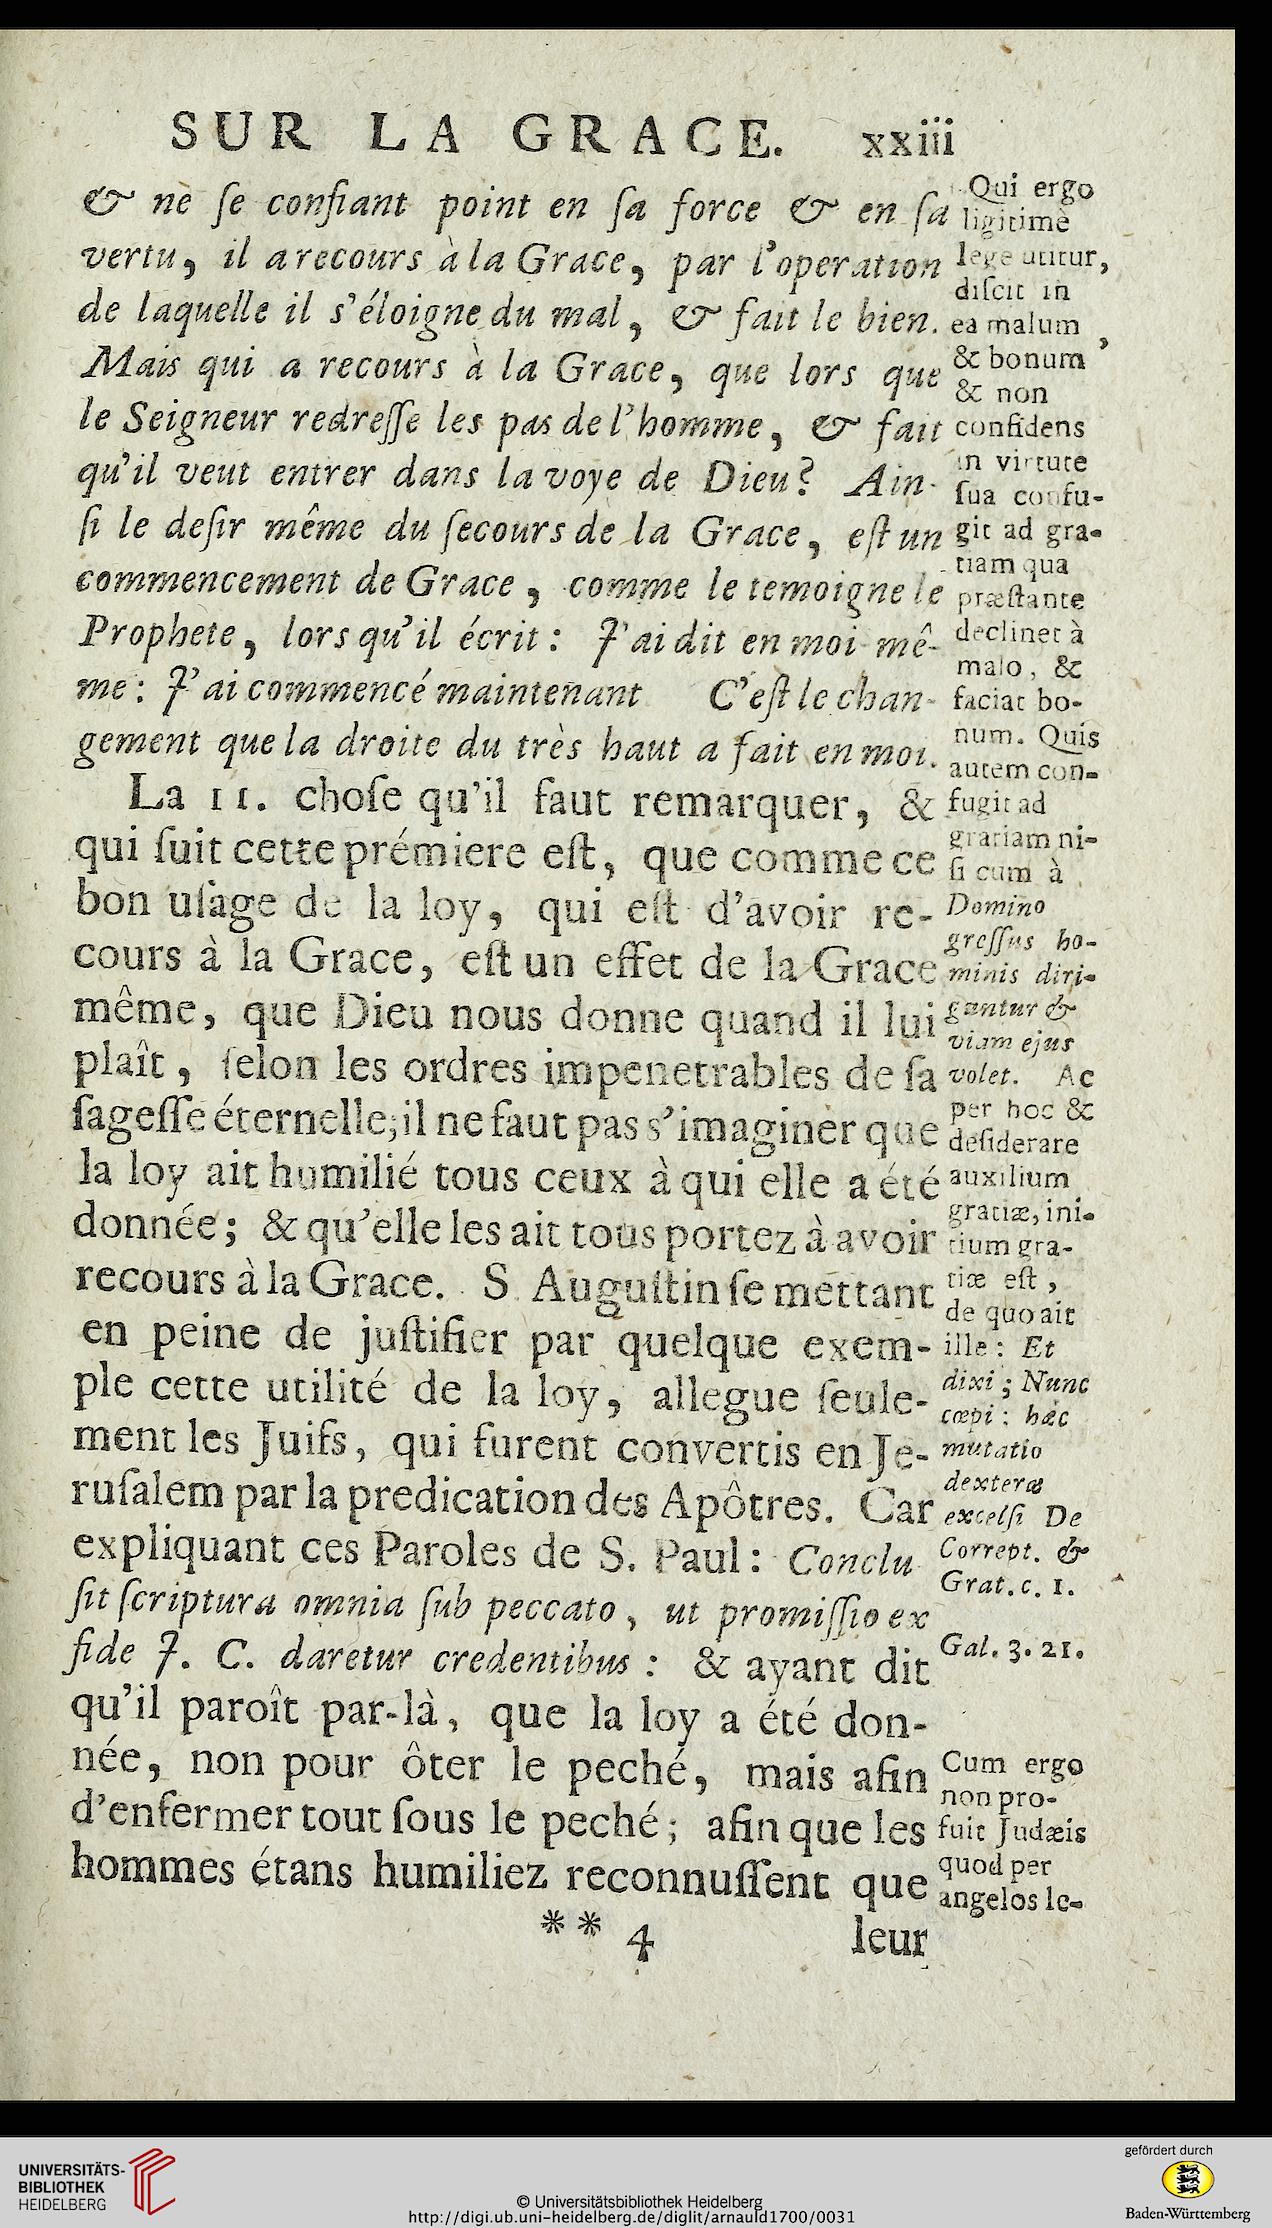 SUR LA GRACE. xxiii
& ne ſe confiant point en ſa force & en ſa
vertu, il a recours à la Grace, par l'operation
de laquelle il s'éloigne du mal, & fait le bien.
Mais qui a recours à la Grace, que lors que
le Seigneur redreſſe les pas de l'homme, & fait
qu'il veut entrer dans la voye de Dieu? Ain-
ſi le deſir même du ſecours de la Grace, eſt un
commencement de Grace, comme le temoigne le
Prophete, lors qu'il écrit: J'ai dit en moi-mê-
me: J'ai commencé maintenant C'eſt le chan-
gement que la droite du très haut a fait en moi.
La II. choſe qu'il faut remarquer, &
qui ſuit cette prémiere eſt, que comme ce
bon uſage de la loy, qui eſt d'avoir re-
cours à la Grace, eſt un effet de la Grace
même, que Dieu nous donne quand il lui
plaît, ſelon les ordres impenetrables de ſa
ſageſſe éternelle; il ne faut pas s'imaginer que
la loy ait humilié tous ceux à qui elle a été
donnée; & qu'elle les ait tous portez à avoir
recours à la Grace. S Auguſtin ſe mettant
en peine de juſtifier par quelque exem-
ple cette utilité de la loy, allegue ſeule-
ment les Juifs, qui furent convertis en Je-
ruſalem par la predication des Apôtres. Car
expliquant ces Paroles de S. Paul: Conclu
ſit ſcriptura omnia ſub peccato, ut promiſſio ex
fide J. C. daretur credentibus: & ayant dit
qu'il paroît par-là, que la loy a été don-
née, non pour ôter le peché, mais afin
d'enfermer tout ſous le peché; afin que les
hommes étans humiliez reconnuſſent que
** 4 leur
Qui ergo
ligitimè
lege utitur,
diſcit in
ea malum,
& bonum
& non
confidens
in virtute
ſua confu-
git ad gra-
tiam qua
præſtante
declinet à
malo, &
faciat bo-
num. Quis
autem con-
fugit ad
gratiam ni-
ſi cum à
Domino
greſſus ho-
minis diri-
gantur &
viam ejus
volet. Ac
per hoc &
deſiderare
auxilium
gratiæ, ini-
tium gra-
tiæ eſt,
de quo ait
ille: Et
dixi; Nunc
cœpi: hæc
mutatio
dexteræ
excelſi De
Corrept. &
Grat. c. 1.
Gal. 3. 21.
Cum ergo
non pro-
fuit Judæis
quod per
angelos le-
UNIVERSITÄTS-
BIBLIOTHEK
HEIDELBERG
© Universitätsbibliothek Heidelberg
http://digi.ub.uni-heidelberg.de/diglit/arnauld1700/0031
gefördert durch
Baden-Württemberg